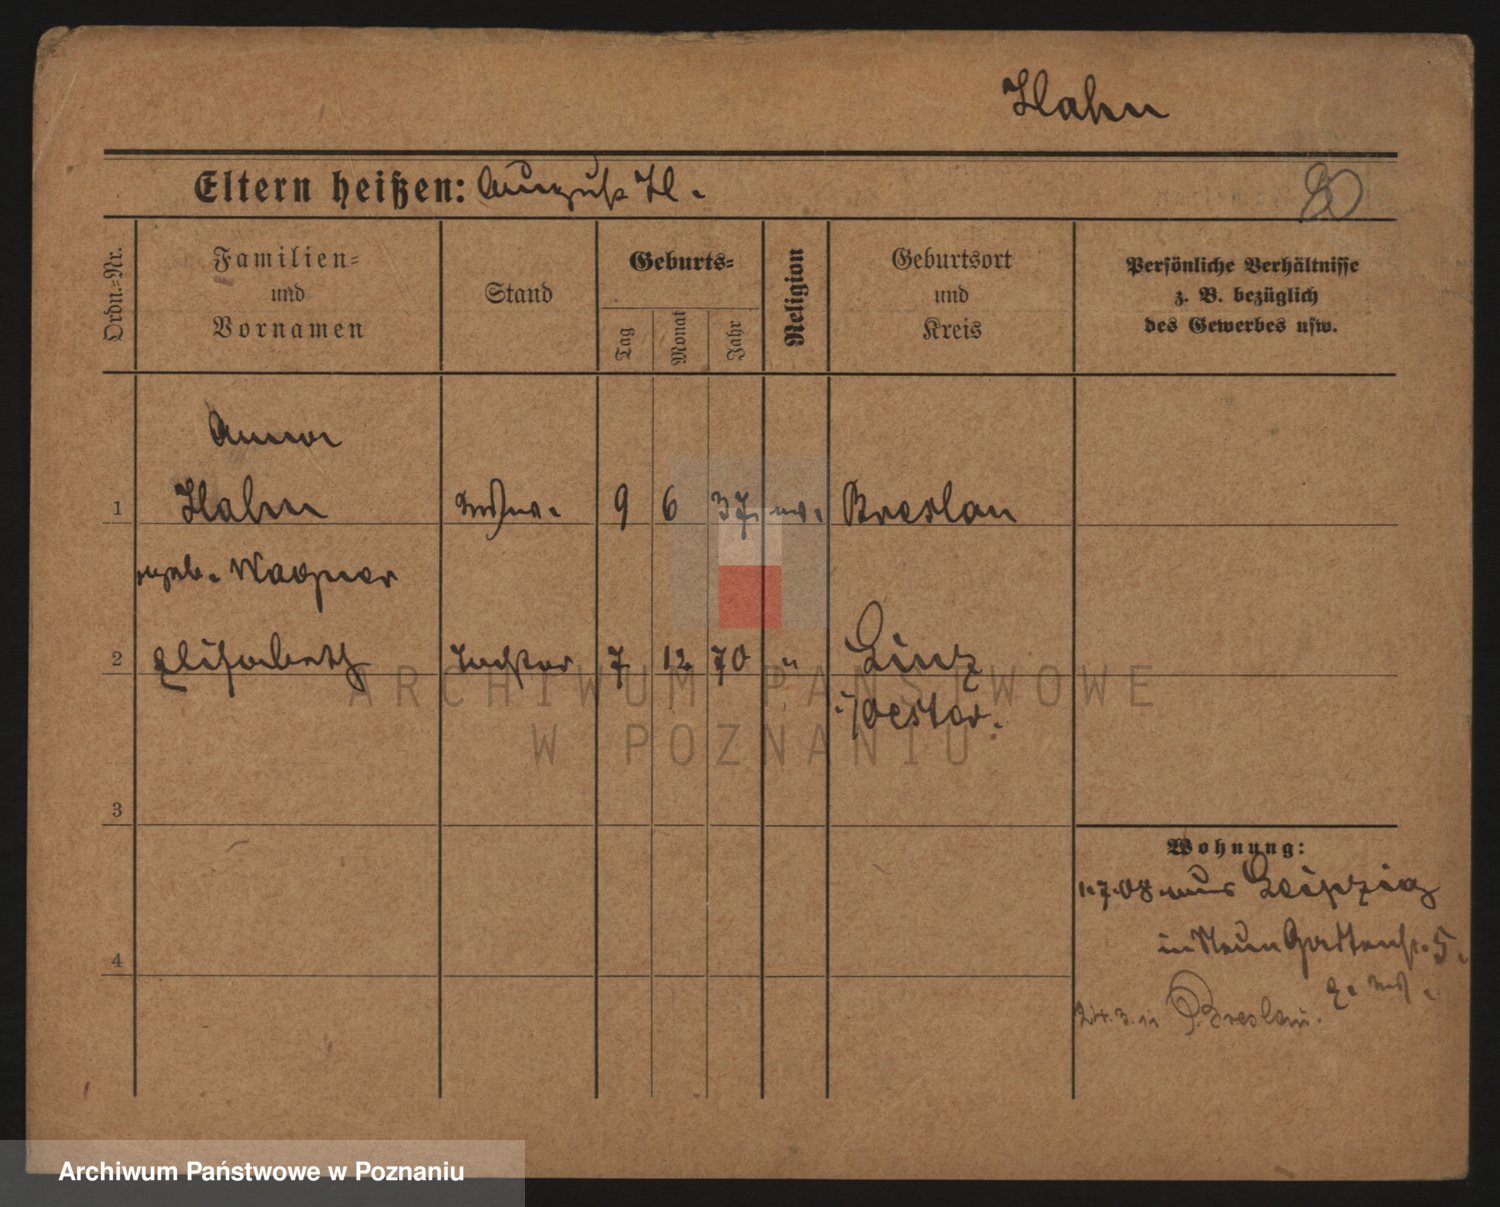 Hahn
Eltern heißen: August H.
80
Ordn.-Nr.
Familien-
und
Vornamen
Stand
Geburts-
Tag
Monat
Jahr
Religion
Geburtsort
und
Kreis
Persönliche Verhältnisse
z. B. bezüglich
des Gewerbes usw.
Anna
1 Hahn Wwe. 9 6 37 ev. Breslau
geb. Wagner
2 Elisabeth Tochter 7 12 70 " Linz
i/Oester.
3
Wohnung:
1.7.08 aus Leipzig
in Neun Gartenstr. 5.
4
24.3.11 Breslau.
ARCHIWUM PAŃSTWOWE
W POZNANIU
Archiwum Państwowe w Poznaniu